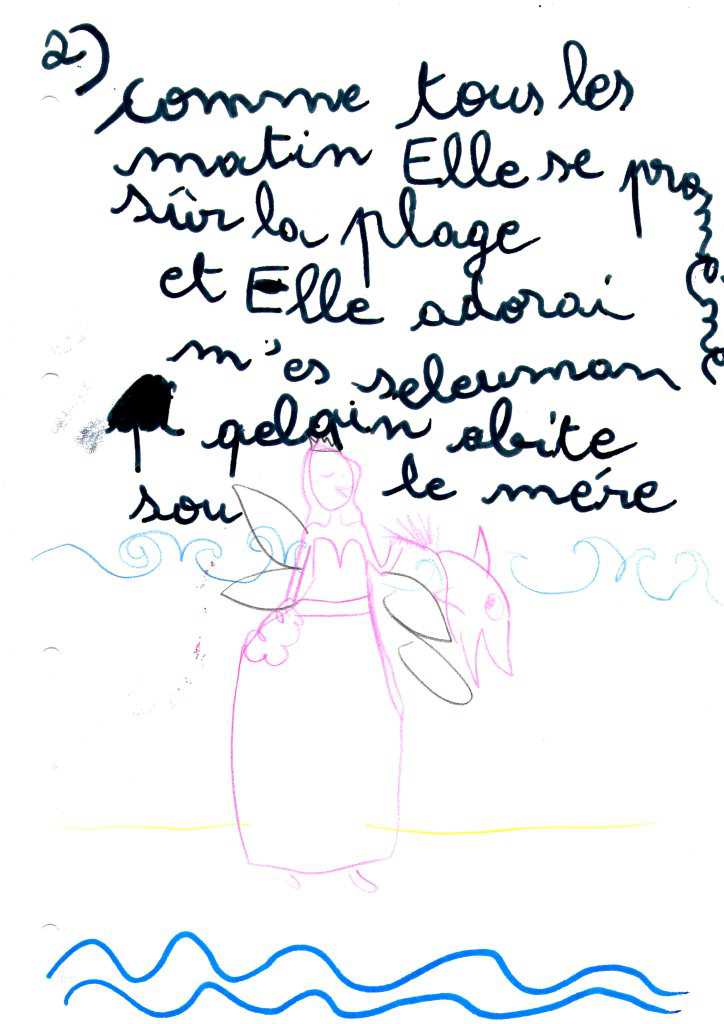 2)
comme tous les
matin Elle se pro
sûr la plage
et Elle adorai
m'es seleuman
qi qelqin abite
sou le mére